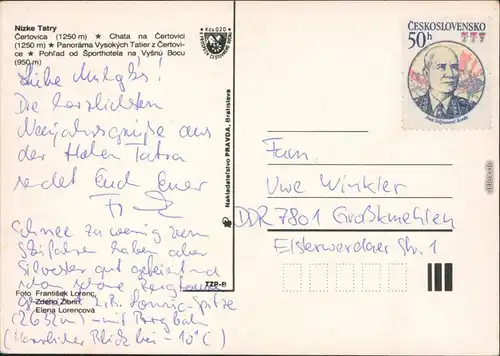 Nízke Tatry
Čertovica (1250 m) ★ Chata na Čertovici
(1250 m) ★ Panoráma Vysokých Tatier z Čertovi-
ce ★ Pohľad od Športhotela na Vyšnú Bocu
(950 m)
Kčs 0,20
Liebe
Die herzlichsten
Neujahrsgrüße aus
der Hohen Tatra
sendet Euch Euer
Schnee zu wenig zum
Skifahren haben aber
Silvester gut gefeiert und
schon schöne
z.B. Lomnic-Spitze
(2632m) – mit Bergbahn
(Herrlicher Blick bei –10°C)
Foto František Lorenc,
Zdeno Žibrin,
Elena Lorencová
TZP-B
Nakladateľstvo PRAVDA, Bratislava
ČESKOSLOVENSKO
50h
Fam.
Uwe Winkler
DDR 7801 Großkmehlen
Elsterwerdaer Str. 1